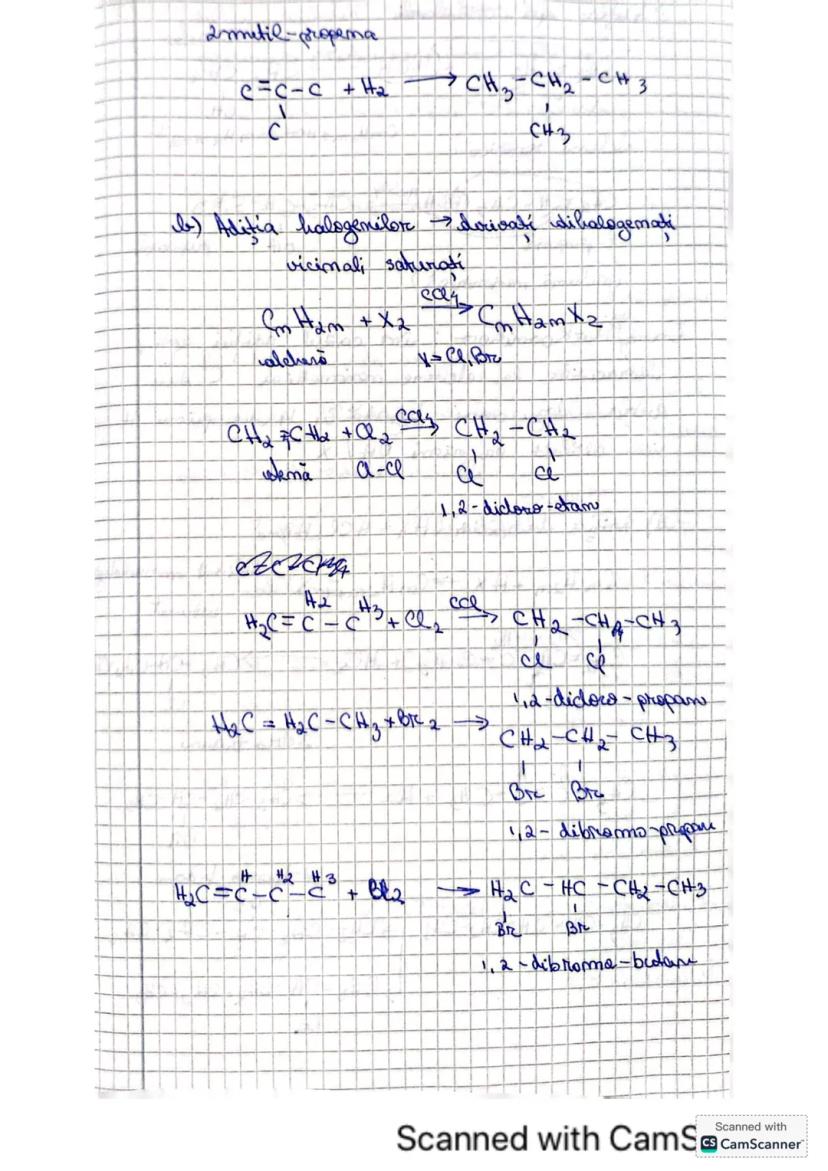 2 metil-propena
C=C-C + H2 → CH3-CH2-CH3
C CH3
b) Adiția halogenilor → derivați dihalogenați
vicinali saturați
CnH2n + X2 CCl4→ CnH2nX2
alchenă X=Cl, Br
CH2=CH2 + Cl2 CCl4→ CH2-CH2
etenă Cl-Cl Cl Cl
1,2-dicloro-etan
H2 H3
H2C=C-C + Cl2 CCl→ CH2-CH-CH3
Cl Cl
1,2-dicloro-propan
H2C=H2C-CH3+Br2 → CH2-CH2-CH3
Br Br
1,2-dibromo-propan
H H2 H3
H2C=C-C-C + Br2 → H2C-HC-CH2-CH3
Br Br
1,2-dibromo-butan
Scanned with CamS
Scanned with
CS CamScanner